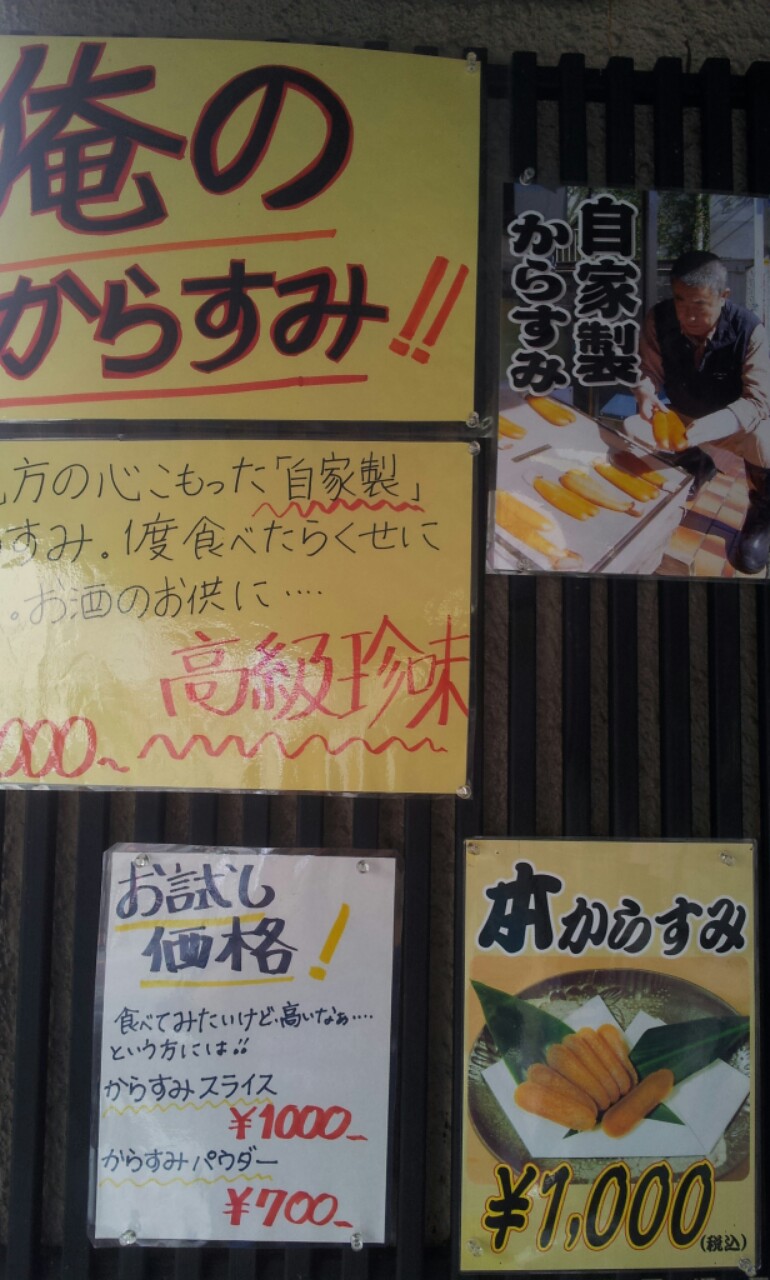 俺の
からすみ!!
方の心こもった「自家製」
すみ。1度食べたらくせに
。お酒のお供に‥‥
高級珍味
000~
自家製
からすみ
お試し
価格!
食べてみたいけど、高いなぁ‥‥
という方には!!
からすみスライス
¥1000-
からすみパウダー
¥700-
本からすみ
¥1,000(税込)